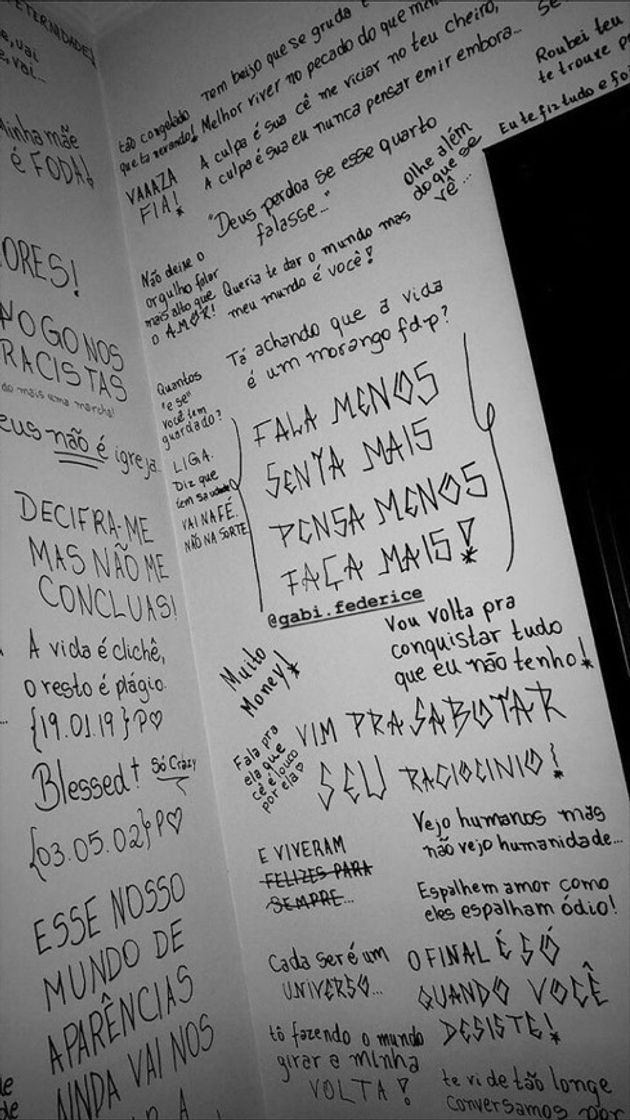 ETERNIDADE!
vai
vai...
Minha mãe
é FODA!
ORES!
FOGO NOS
RACISTAS
do mais uma marcha!
eus não é igreja
DECIFRA-ME
MAS NÃO ME
CONCLUAS!
A vida é clichê,
o resto é plágio.
{19.01.19} P♡
Blessed† Só Crazy
{03.05.02} P♡
ESSE NOSSO
MUNDO DE
APARÊNCIAS
AINDA VAI NOS
tão congelado
que ta nevando!
VAAAZA
FIA!
Não deixe o
orgulho falar
mais alto que
o AMOR!
Quantos
"e se"
você tem
guardado?
LIGA.
Diz que
tem saudade
VAI NA FÉ.
NÃO NA SORTE
Tem beijo que se gruda
Melhor viver no pecado do que
A culpa é sua cê me viciar no teu cheiro,
A culpa é sua eu nunca pensar em ir embora...
"Deus perdoa se esse quarto
falasse..."
Olhe além
do que se
vê...
Roubei teu
te trouxe
Eu te fiz tudo e foi
Queria te dar o mundo mas
meu mundo é você!
Tá achando que a vida
é um morango fdp?
FALA MENOS
SENTA MAIS
PENSA MENOS
FAÇA MAIS!
@gabi.federice
Muito
Money!
Vou volta pra
conquistar tudo
que eu não tenho!
Fala pra
ela que
cê é louco
por ela♡
VIM PRA SABOTAR
SEU RACIOCINIO!
E VIVERAM
FELIZES PARA
SEMPRE...
Vejo humanos mas
não vejo humanidade...
Espalhem amor como
eles espalham ódio!
Cada ser é um
UNIVERSO...
O FINAL É SÓ
QUANDO VOCÊ
DESISTE!
tô fazendo o mundo
girar a minha
VOLTA!
te vi de tão longe
conversamos por